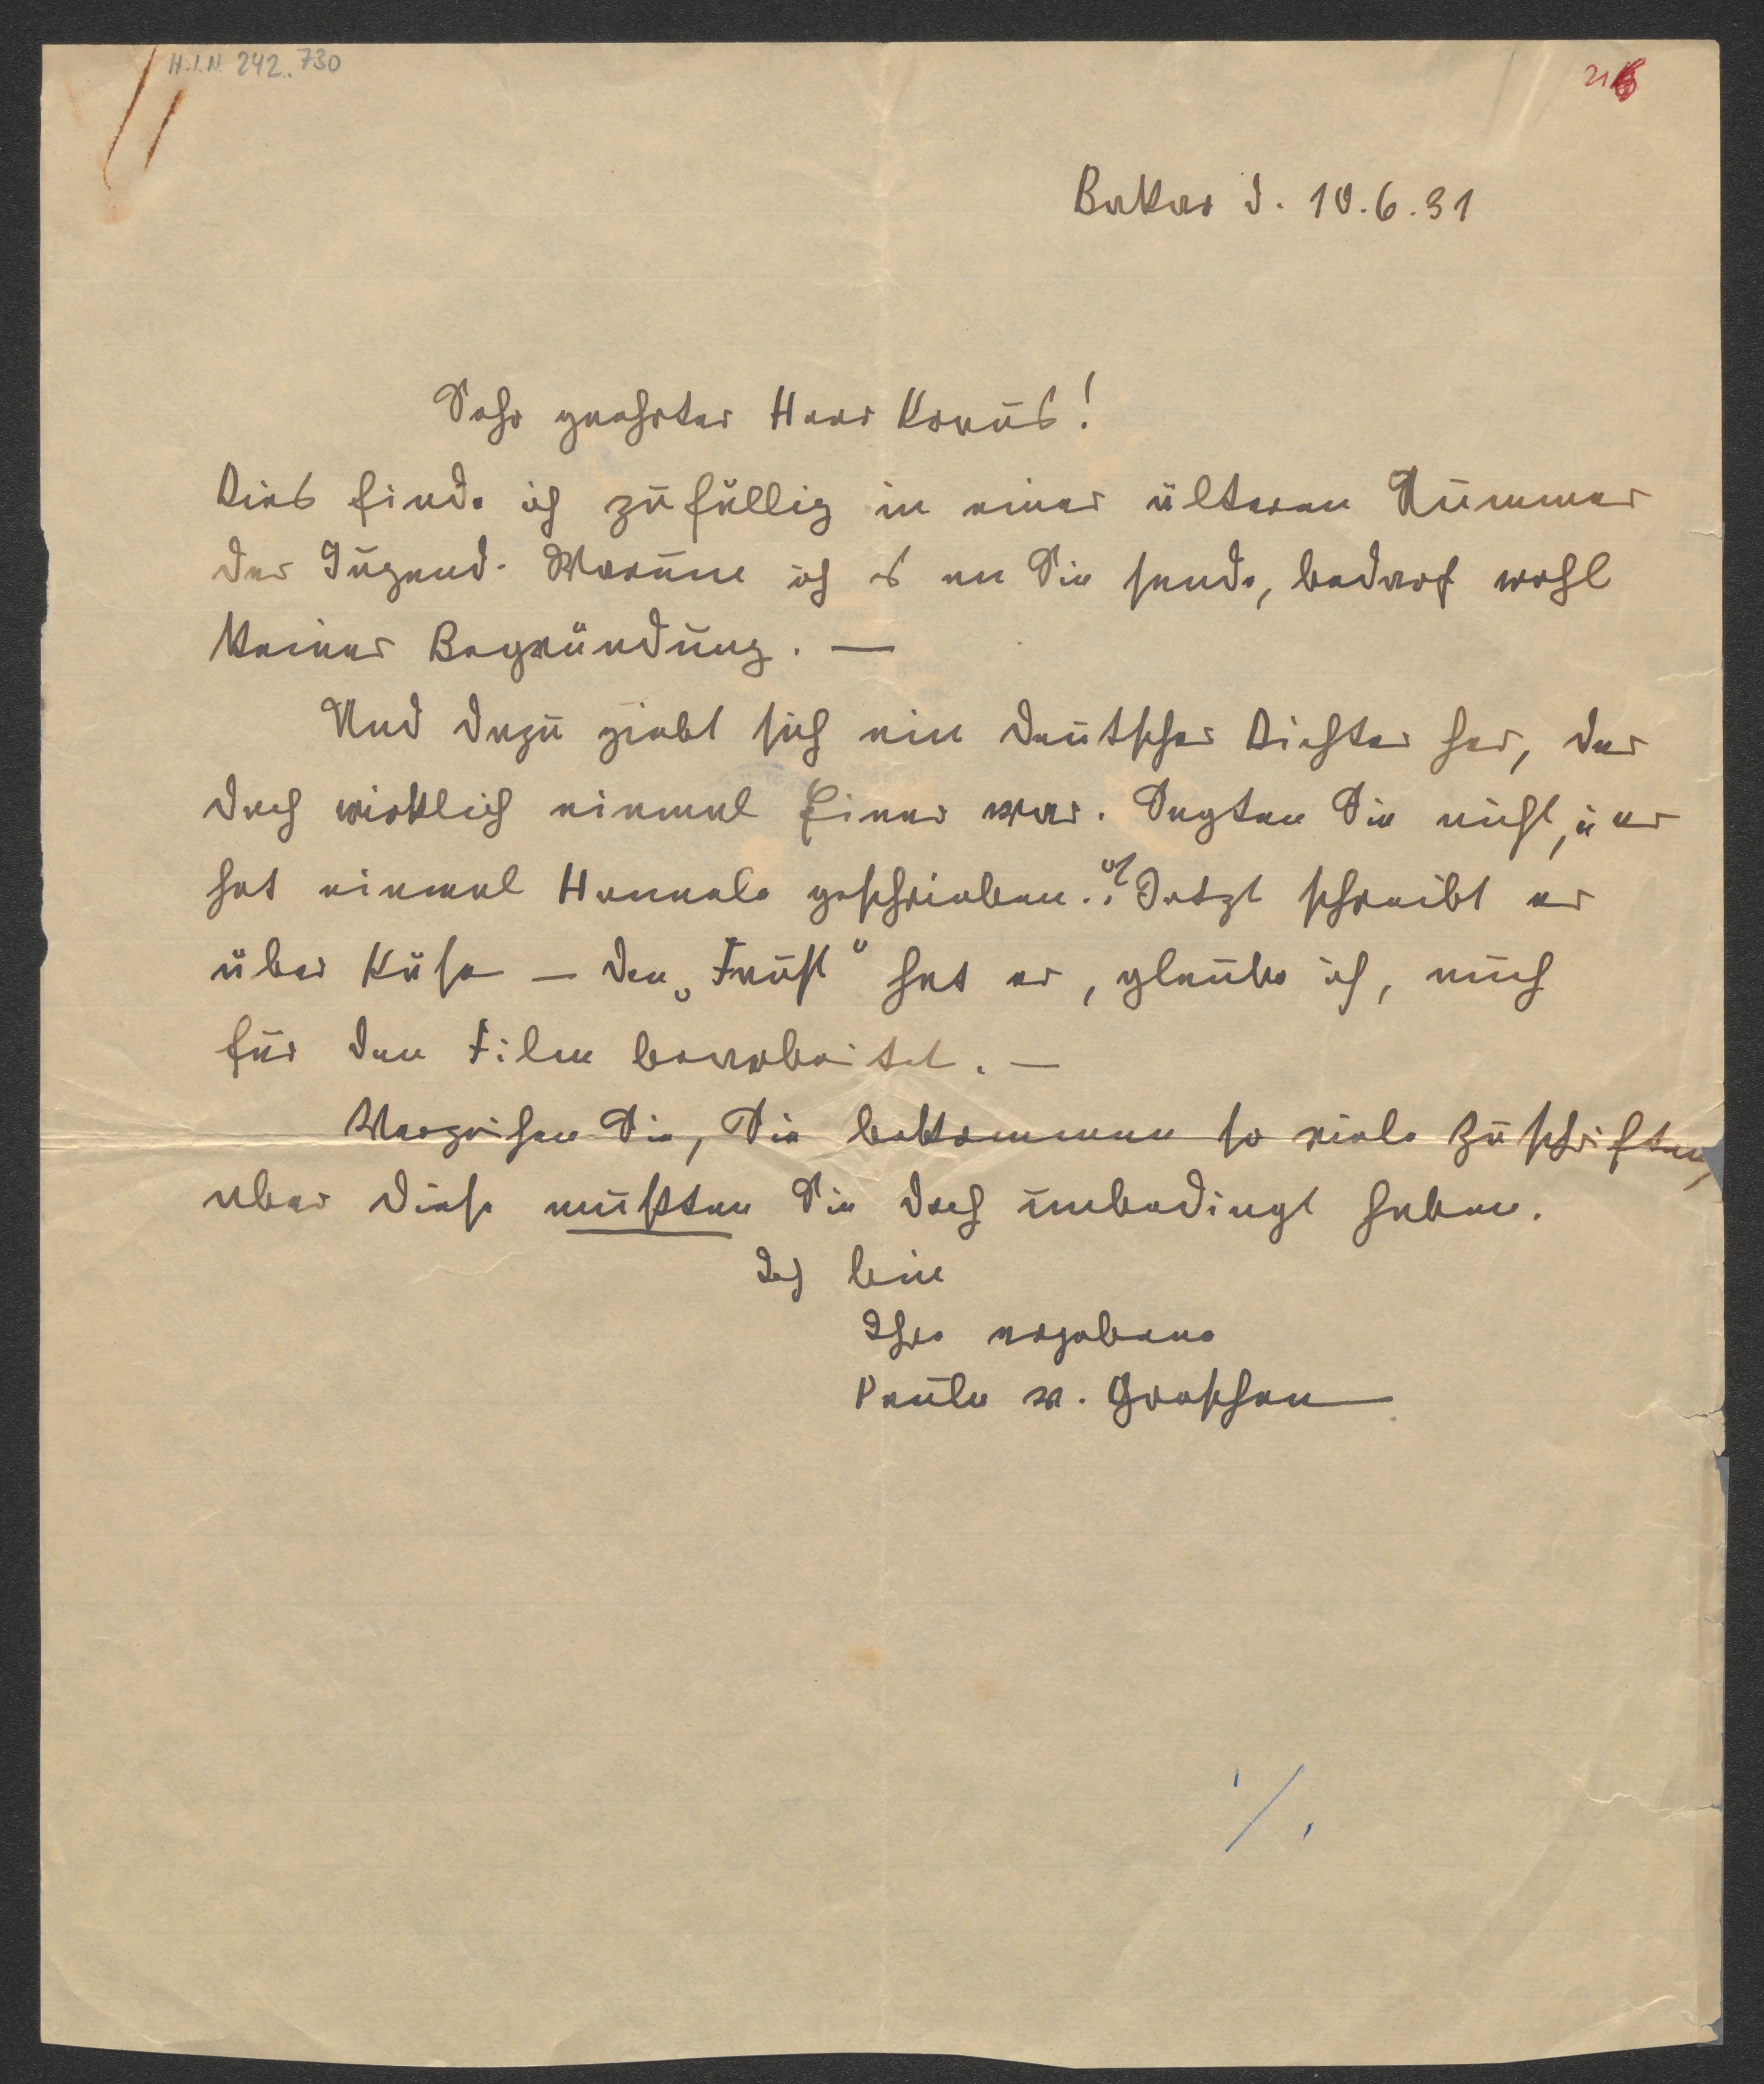 H.I.N. 242.730
Bakar d. 10.6.31
Sehr geehrter Herr Kraus!
Dies finde ich zufällig in einer älteren Nummer
der Jugend. Warum ich es an Sie sende, bedarf wohl
keiner Begründung. —
Und dazu giebt sich ein deutscher Dichter her, der
doch wirklich einmal Einer war. Sagten Sie nicht, „er
hat einmal Hannele geschrieben."? Jetzt schreibt er
über Käse — den „Faust" hat er, glaube ich, auch
für den Film bearbeitet. —
Verzeihen Sie, Sie bekommen so viele Zuschriften,
aber diese mußten Sie doch unbedingt haben.
Ich bin
Ihre ergebene
Paula v. Greschen